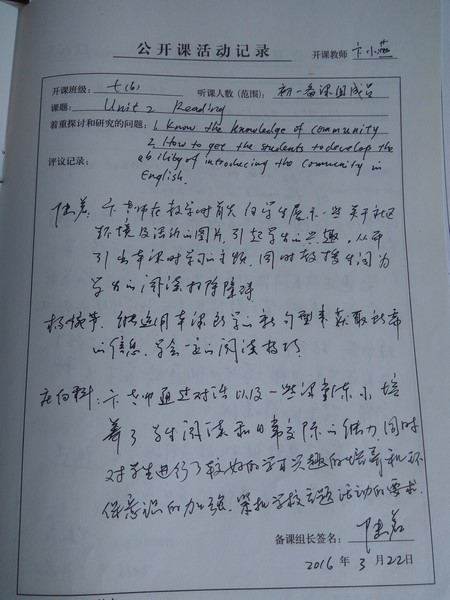 公开课活动记录
开课教师 卞小燕
开课班级: 七(6) 听课人数(范围): 初一备课组成员
课题: Unit 2 Reading
着重探讨和研究的问题: 1. Know the knowledge of community
2. How to get the students to develop the
评议记录: ability of introducing the community in
English.
卞老师在教学时首先向学生展示一些关于社区
环境及活动的图片,引起学生的兴趣,从而
引出本课时学习的主题,同时
学生的阅读扫除障碍
能运用本课所学的新句型来获取所需
的信息,学会一定的阅读技巧
卞老师通过对话以及一些课堂练习,培
养了学生阅读和日常交际的能力,同时
对学生进行了较好的学习兴趣的培养和环
保意识的加强,紧扣学校主题活动的要求.
备课组长签名:
2016 年 3 月 22 日